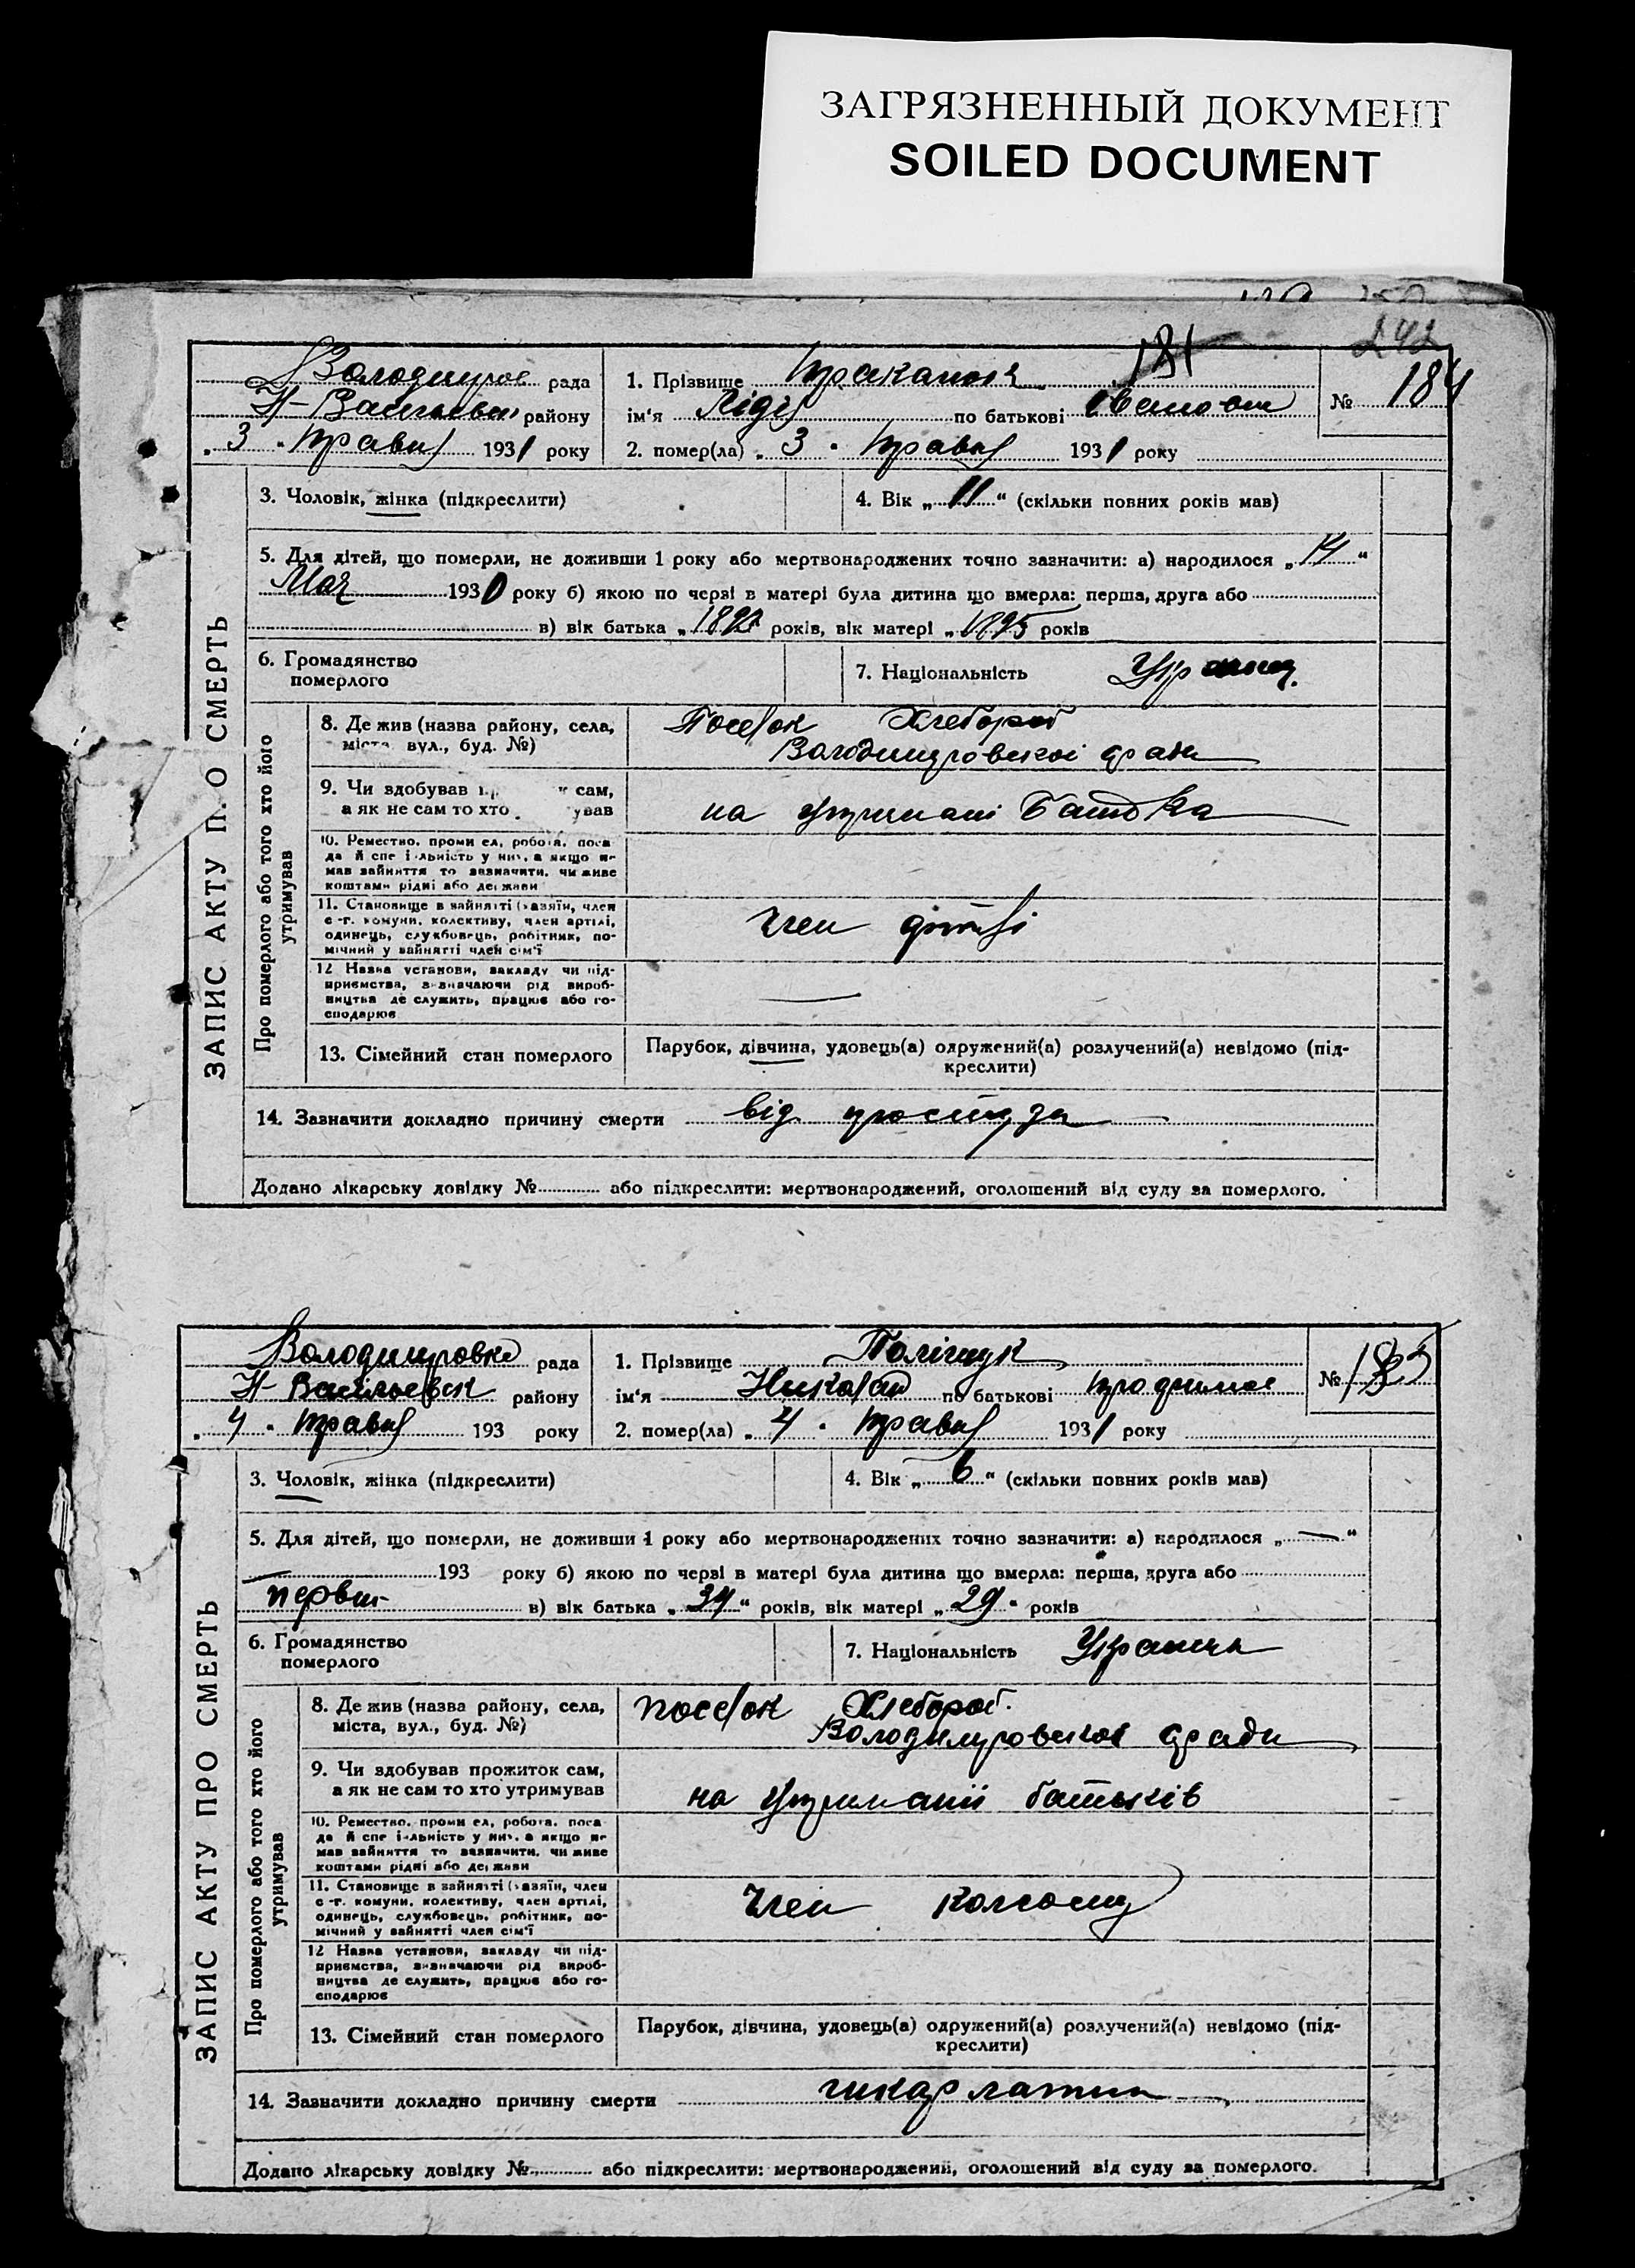 ЗАГРЯЗНЕННЫЙ ДОКУМЕНТ
SOILED DOCUMENT
242
181
рада
району
3 Травня 1931 року
1. Прізвище
ім'я Лідія по батькові
2. помер(ла) „ 3 " Травня 1931 року
№ 184
3. Чоловік, жінка (підкреслити)
4. Вік „ 11 “ (скільки повних років мав)
5. Для дітей, що померли, не доживши 1 року або мертвонароджених точно зазначити: а) народилося „ 14 “
Мая 1930 року б) якою по черзі в матері була дитина що вмерла: перша, друга або
в) вік батька „ років, вік матері „ 1895 років
6. Громадянство
померлого
7. Національність
ЗАПИС АКТУ П О СМЕРТЬ
Про померлого або того хто його
утримував
8. Де жив (назва району, села,
міста вул., буд. №)
Поселок Хлебороб
Володимировскоі ради
9. Чи здобував сам,
а як не сам то хто ував
на утримані Батька
10. Ремество, проми ел, робота, поса
да й спе і льність у них, а якщо не
мав зайняття то зазначити, чи живе
коштами рідні або держави
11. Становище в зайнятті (хазяїн, член
с-г. комуни, колективу, член артілі,
одинець, службовець, робітник, по-
мічний у зайнятті член сім'ї
Член
12 Назва установи, закладу чи під-
приємства, визначаючи рід вироб-
ництва де служить, працює або го-
сподарює
13. Сімейний стан померлого
Парубок, дівчина, удовець(а) одружений(а) розлучений(а) невідомо (під-
креслити)
14. Зазначити докладно причину смерти від простуди
Додано лікарську довідку № або підкреслити: мертвонароджений, оголошений від суду за померлого.
Володимировка рада
Н-Васильевск району
4 Травня 193 року
1. Прізвище Поліщук
ім'я Николай по батькові
2. помер(ла) „ 4 " Травня 1931 року
№ 185
3. Чоловік, жінка (підкреслити)
4. Вік „ 6 “ (скільки повних років мав)
5. Для дітей, що померли, не доживши 1 року або мертвонароджених точно зазначити: а) народилося „ — “
— 193 року б) якою по черзі в матері була дитина що вмерла: перша, друга або
в) вік батька „ 34 “ років, вік матері „ 29 " років
6. Громадянство
померлого
7. Національність
ЗАПИС АКТУ ПРО СМЕРТЬ
Про померлого або того хто його
утримував
8. Де жив (назва району, села,
міста, вул., буд. №)
поселок Хлебороб.
Володимировскоі ради
9. Чи здобував прожиток сам,
а як не сам то хто утримував
на утриманії батьків
10. Ремество, проми ел, робота, поса
да й спе і льність у них, а якщо не
мав зайняття то зазначити, чи живе
коштами рідні або держави
11. Становище в зайнятті (хазяїн, член
с-г. комуни, колективу, член артілі,
одинець, службовець, робітник, по-
мічний у зайнятті член сім'ї
Член колгоспу
12 Назва установи, закладу чи під-
приємства, визначаючи рід вироб-
ництва де служить, працює або го-
сподарює
13. Сімейний стан померлого
Парубок, дівчина, удовець(а) одружений(а) розлучений(а) невідомо (під-
креслити)
14. Зазначити докладно причину смерти
Додано лікарську довідку № або підкреслити: мертвонароджений, оголошений від суду за померлого.